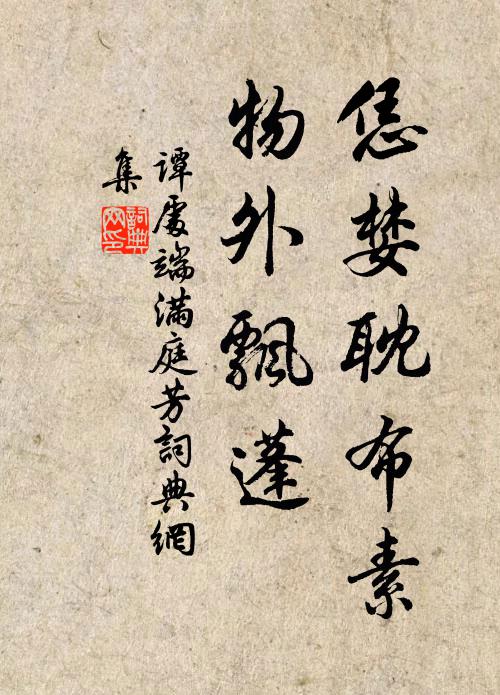 恁婪耽布素
物外飄蓬
譚處端滿庭芳詞典網
集
詞典
网印